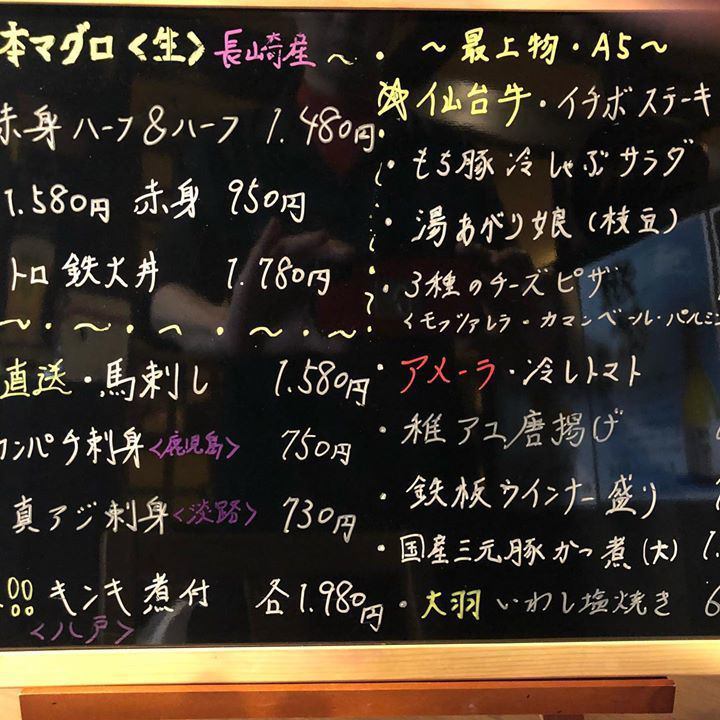 本マグロ〈生〉長崎産～
赤身ハーフ&ハーフ 1.480円
1.580円 赤身 950円
トロ鉄火丼 1.780円
直送・馬刺し 1.580円
カンパチ刺身〈鹿児島〉 750円
真アジ刺身〈淡路〉 730円
キンキ煮付 各1.980円
〈八戸〉
～最上物・A5～
仙台牛・イチボステーキ
・もち豚冷しゃぶサラダ
・湯あがり娘（枝豆）
・3種のチーズピザ
〈モッツァレラ・カマンベール・パルミ
・アメーラ・冷しトマト
・稚アユ唐揚げ
・鉄板ウインナー盛り
・国産三元豚かつ煮(大) 1.
・大羽いわし塩焼き 6